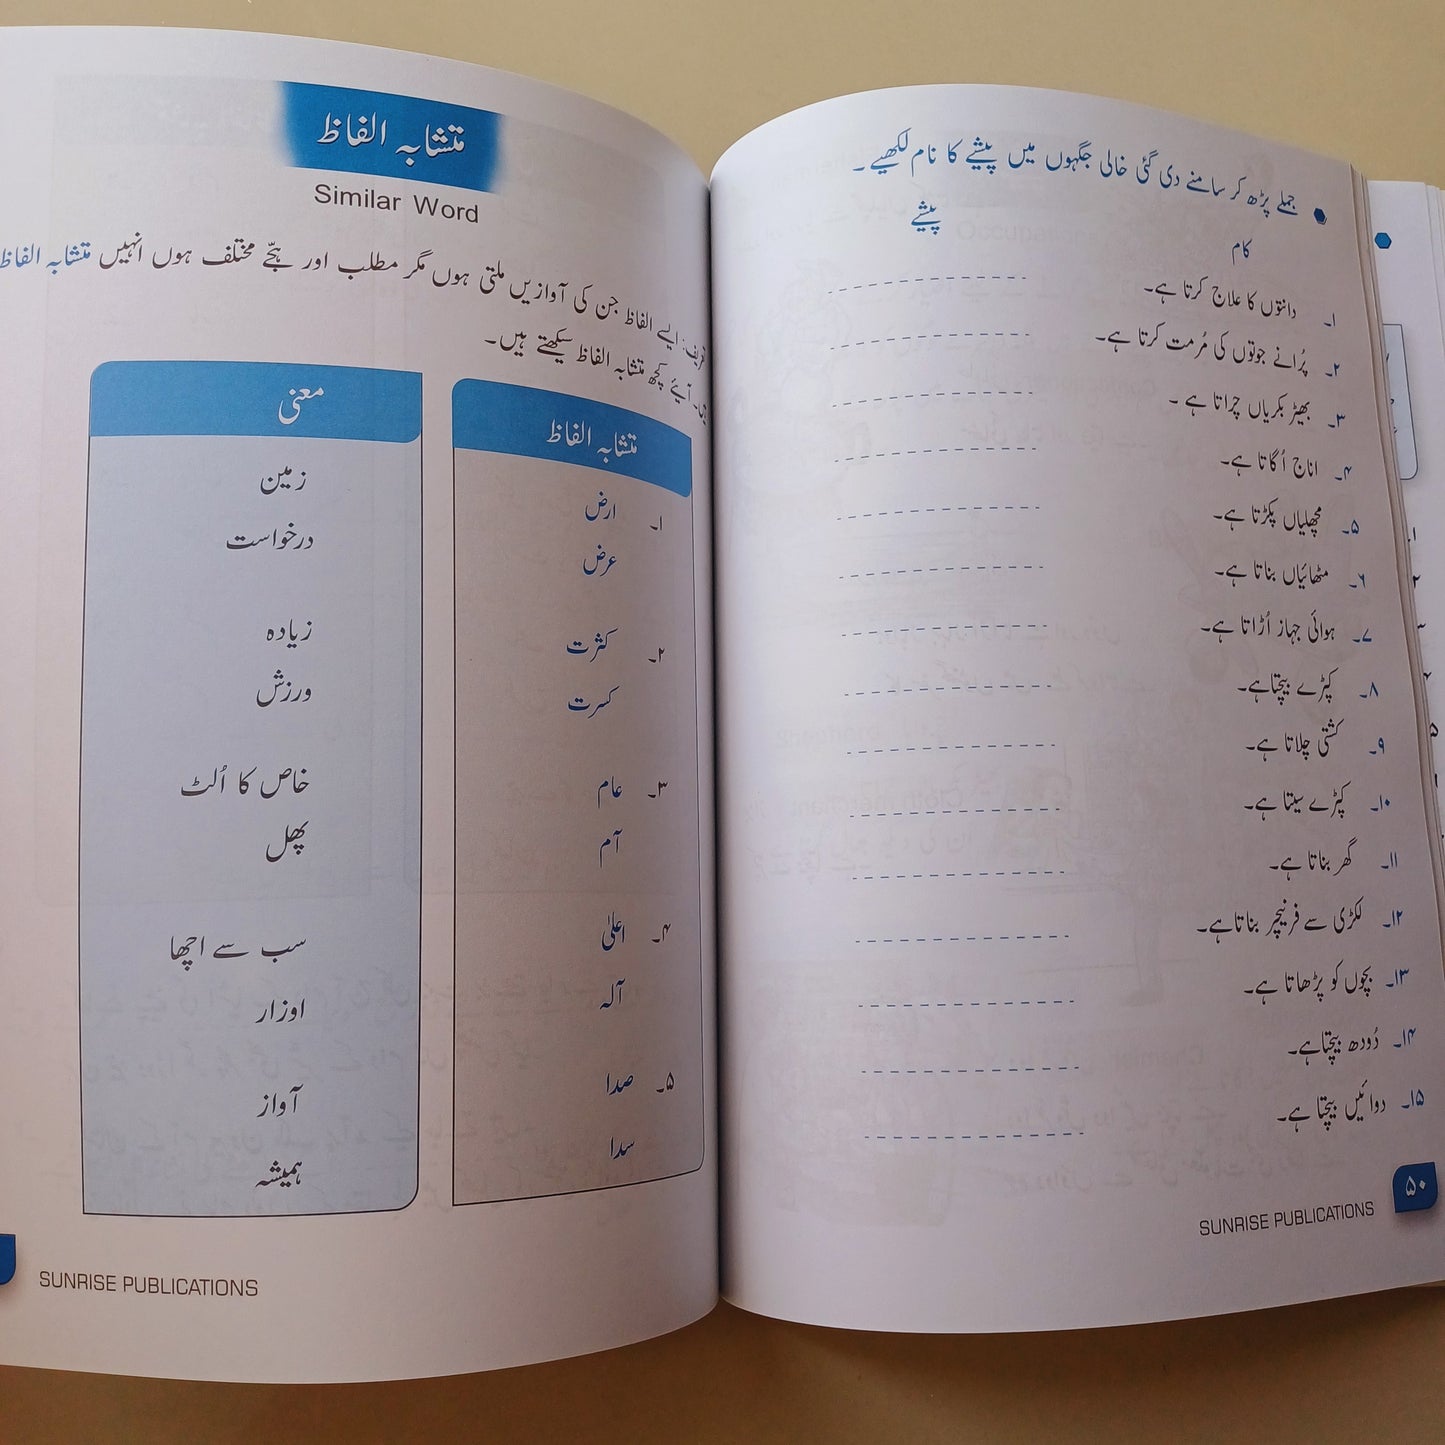 ● جملے پڑھ کر سامنے دی گئی خالی جگہوں میں پیشے کا نام لکھیے۔
کام پیشے
۱۔ دانتوں کا علاج کرتا ہے۔
۲۔ پُرانے جوتوں کی مُرمت کرتا ہے۔
۳۔ بھیڑ بکریاں چراتا ہے۔
۴۔ اناج اُگاتا ہے۔
۵۔ مچھلیاں پکڑتا ہے۔
۶۔ مٹھائیاں بناتا ہے۔
۷۔ ہوائی جہاز اُڑاتا ہے۔
۸۔ کپڑے بیچتاہے۔
۹۔ کشتی چلاتا ہے۔
۱۰۔ کپڑے سیتا ہے۔
۱۱۔ گھر بناتا ہے۔
۱۲۔ لکڑی سے فرنیچر بناتاہے۔
۱۳۔ بچوں کو پڑھاتا ہے۔
۱۴۔ دُودھ بیچتاہے۔
۱۵۔ دوائیں بیچتا ہے۔
۵۰
SUNRISE PUBLICATIONS
متشابہ الفاظ
Similar Word
تعریف: ایسے الفاظ جن کی آوازیں ملتی ہوں مگر مطلب اور ہجّے مختلف ہوں انہیں متشابہ الفاظ
آیئے کچھ متشابہ الفاظ سیکھتے ہیں۔
متشابہ الفاظ معنی
۱۔ ارض زمین
عرض درخواست
۲۔ کثرت زیادہ
کسرت ورزش
۳۔ عام خاص کا اُلٹ
آم پھل
۴۔ اعلیٰ سب سے اچھا
آلہ اوزار
۵۔ صدا آواز
سدا ہمیشہ
SUNRISE PUBLICATIONS